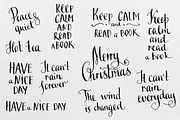 Peace &
quiet
Hot tea
HAVE
A NICE
DAY
HAVE
A NICE DAY
KEEP
CALM
AND
READ
A BOOK
It can't
rain
forever
Merry
Christmas
The wind
is changed
KEEP CALM
and
READ A BOOK
Keep
calm
and
read
a book
It can't
rain
everyday